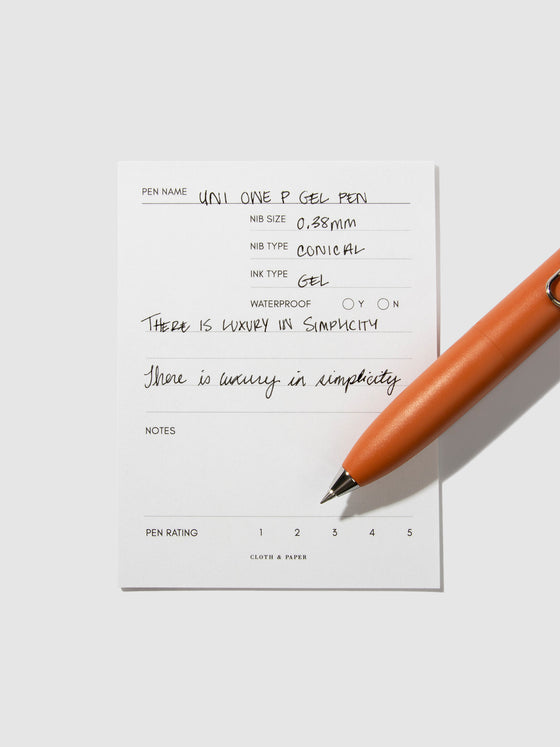 PEN NAME UNI ONE P GEL PEN
NIB SIZE 0.38mm
NIB TYPE CONICAL
INK TYPE GEL
WATERPROOF Y N
THERE IS LUXURY IN SIMPLICITY
There is luxury in simplicity
NOTES
PEN RATING 1 2 3 4 5
CLOTH & PAPER